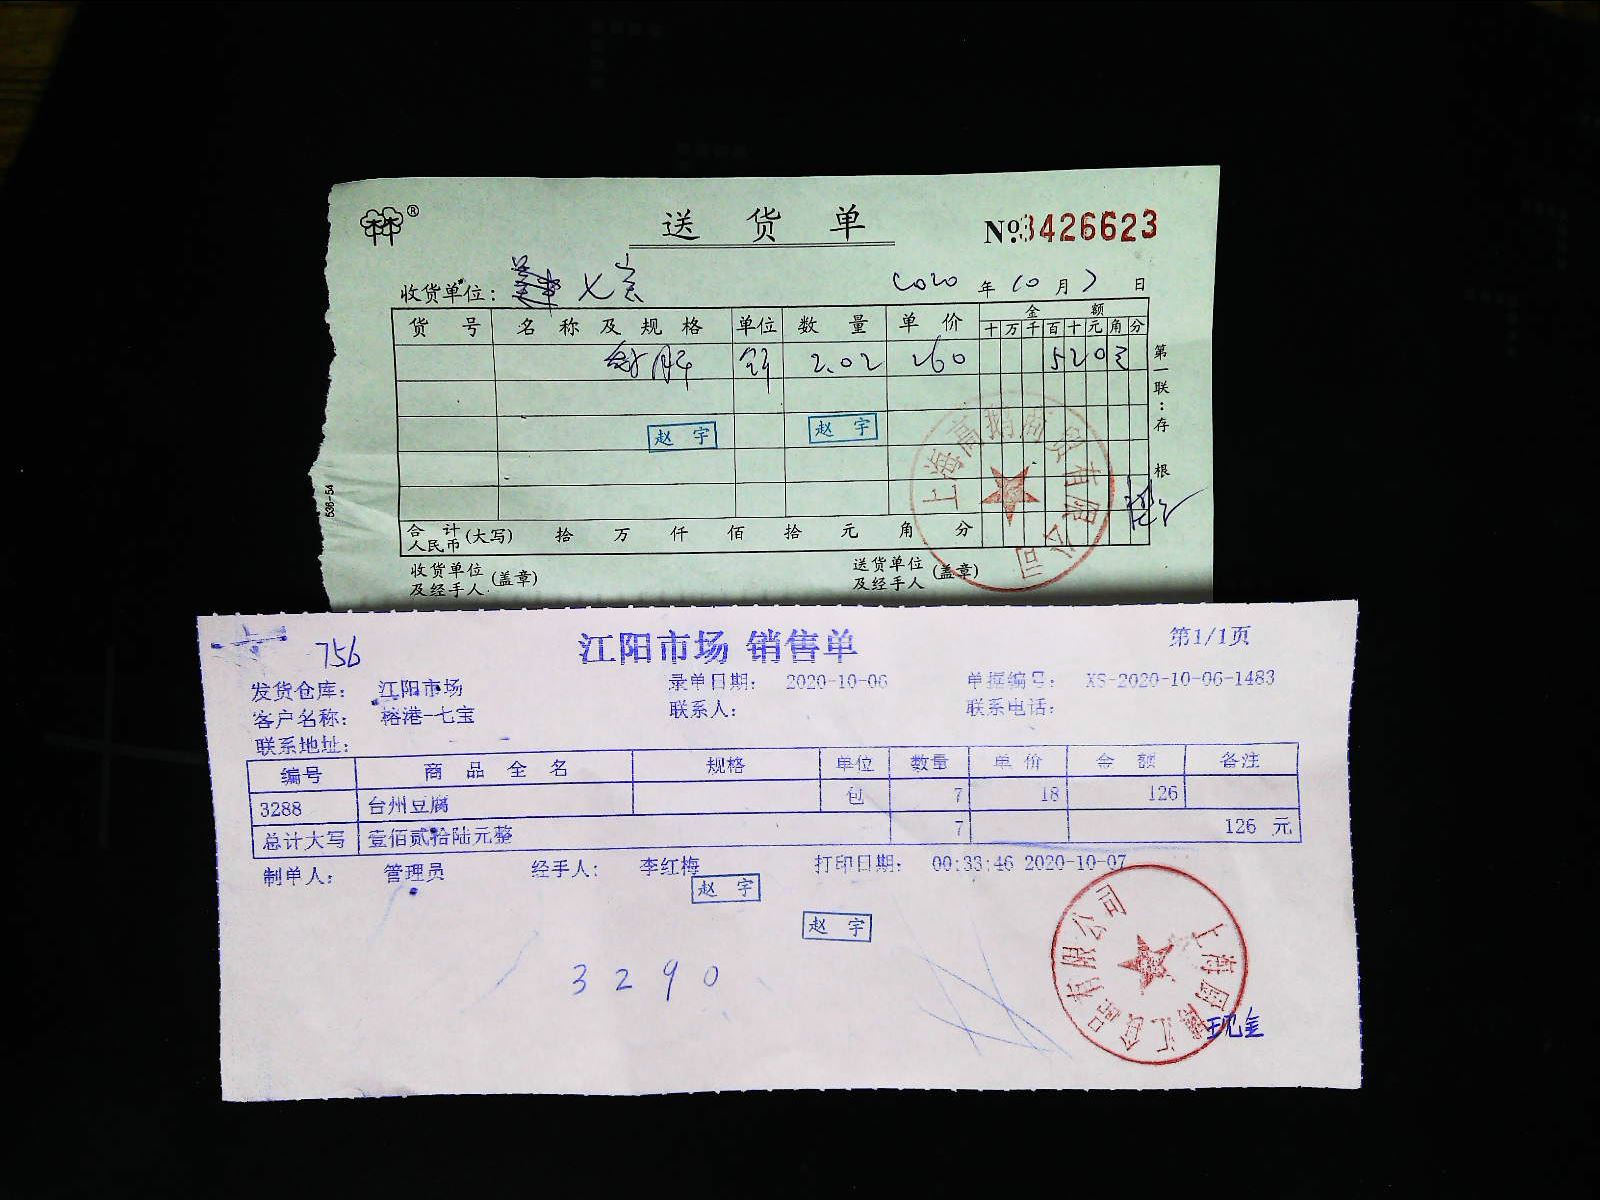 ®
送货单
№3426623
收货单位: 七宝 2020年10月7日
货号 名称及规格 单位 数量 单价 金额
十万千百十元角分
2.02 260 520
第一联:存根
赵宇 赵宇
536-54
合计人民币(大写) 拾 万 仟 佰 拾 元 角 分
收货单位及经手人(盖章) 送货单位及经手人(盖章)
上海高鹅商贸有限公司
756 江阳市场 销售单 第1/1页
发货仓库: 江阳市场 录单日期: 2020-10-06 单据编号: XS-2020-10-06-1483
客户名称: 榕港-七宝 联系人: 联系电话:
联系地址:
编号 商品全名 规格 单位 数量 单价 金额 备注
3288 台州豆腐 包 7 18 126
总计大写 壹佰贰拾陆元整 7 126 元
制单人: 管理员 经手人: 李红梅 打印日期: 00:33:46 2020-10-07
赵宇
赵宇
3290
现金